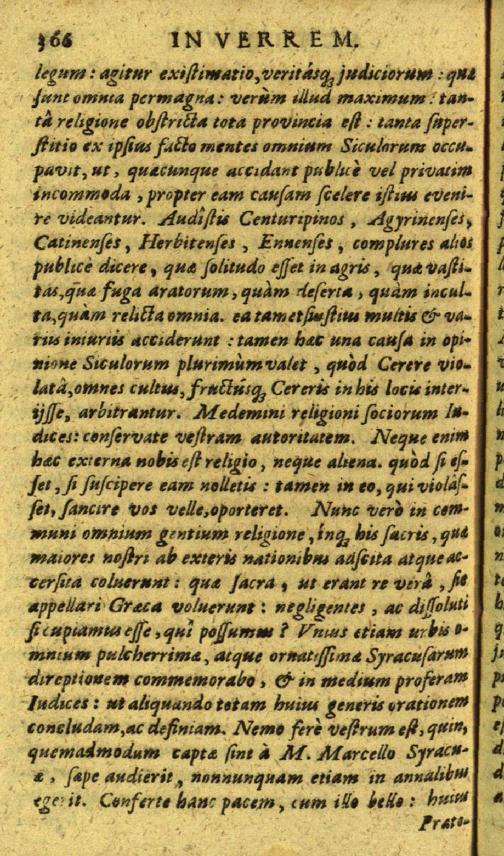 366 IN VERREM.
legum: agitur existimatio, veritásq; judiciorum: quæ
sunt omnia permagna: verùm illud maximum: tan-
tâ religione obstricta tota provincia est: tanta super-
stitio ex ipsius facto mentes omnium Siculorum occu-
pavit, ut, quæcunque accidant publicè vel privatim
incommoda, propter eam causam scelere istius eveni-
re videantur. Audîstis Centuripinos, Agyrinenses,
Catinenses, Herbitenses, Ennenses, complures alios
publicè dicere, quæ solitudo esset in agris, quæ vasti-
tas, quæ fuga aratorum, quàm deserta, quàm incul-
ta, quàm relicta omnia. ea tametsi istius multis & va-
riis iniuriis acciderunt: tamen hæc una causa in opi-
nione Siculorum plurimùm valet, quòd Cerere vio-
latâ, omnes cultus, fructúsq; Cereris in his locis inter-
ijsse, arbitrantur. Medemini religioni sociorum Iu-
dices: conservate vestram autoritatem. Neque enim
hæc externa nobis est religio, neque aliena. quòd si es-
set, si suscipere eam nolletis: tamen in eo, qui violâs-
set, sancire vos velle, oporteret. Nunc verò in com-
muni omnium gentium religione, inq; his sacris, quæ
maiores nostri ab exteris nationibus adscita atque ac-
cersita coluerunt: quæ sacra, ut erant re verâ, sic
appellari Græca voluerunt: negligentes, ac dissoluti
si cupiamus esse, quî possumus? Vnius etiam urbis o-
mnium pulcherrimæ, atque ornatissimæ Syracusarum
direptionem commemorabo, & in medium proferam
Iudices: ut aliquando totam huius generis orationem
concludam, ac definiam. Nemo ferè vestrum est, quin,
quemadmodum captæ sint à M. Marcello Syracu-
æ, sæpe audierit, nonnunquam etiam in annalibus
egerit. Conferte hanc pacem, cum illo bello: huius
Præto-